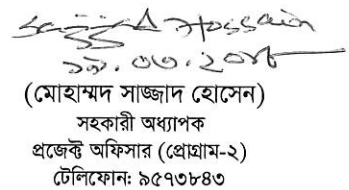 Sajjad Hossain
(মোহাম্মদ সাজ্জাদ হোসেন)
সহকারী অধ্যাপক
প্রজেক্ট অফিসার (প্রোগ্রাম-২)
টেলিফোন: ৯৫৭৩৮৪৩